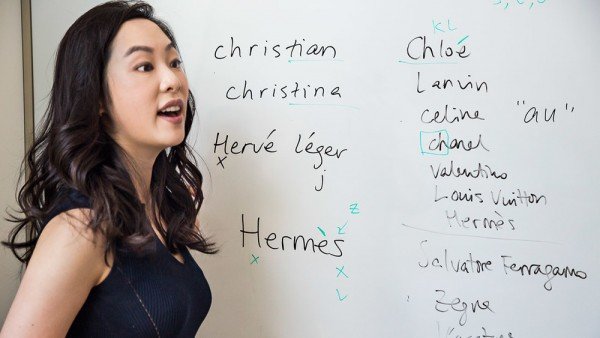 christian
christina
Hervé léger
x
j
Hermès
z
x
x
L
KL
Chloé
Lanvin
celine "au"
chanel
valentino
Louis Vuitton
Hermès
Salvatore Ferragamo
Zegna